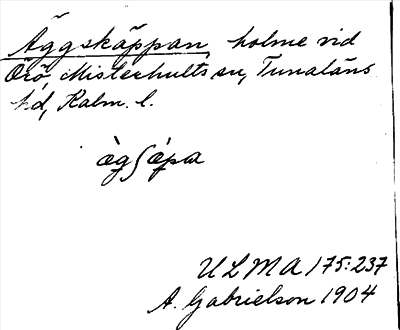 Äggskäppan, holme vid
Örö, Misterhults sn, Tunaläns
hd, Kalm. l.
ÆgʃÆpa
ULMA 175:237
A. Gabrielson 1904